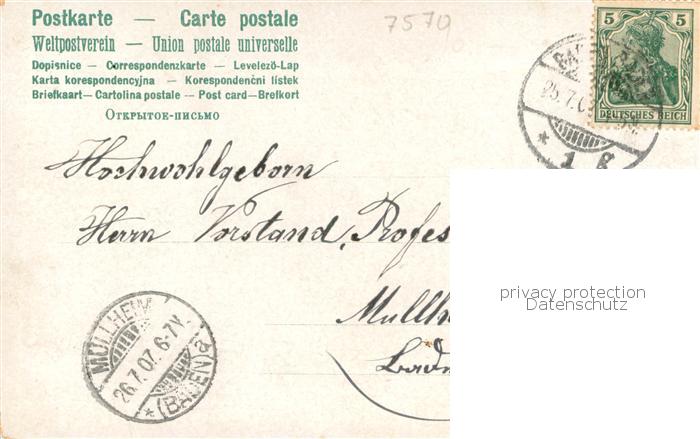 Postkarte — Carte postale
Weltpostverein — Union postale universelle
Dopisnice — Correspondenzkarte — Levelező-Lap
Karta korespondencyjna — Korespondenční lístek
Briefkaart — Cartolina postale — Post card — Brefkort
Открытое-письмо
7579
5 5
DEUTSCHES REICH
25.7.0
* 1
Hochwohlgeborn
Herrn Vorstand, Profes
Mullh
Bad
MÜLLHEIM
26.7.07. 6-7V.
* (BADEN) a
privacy protection
Datenschutz